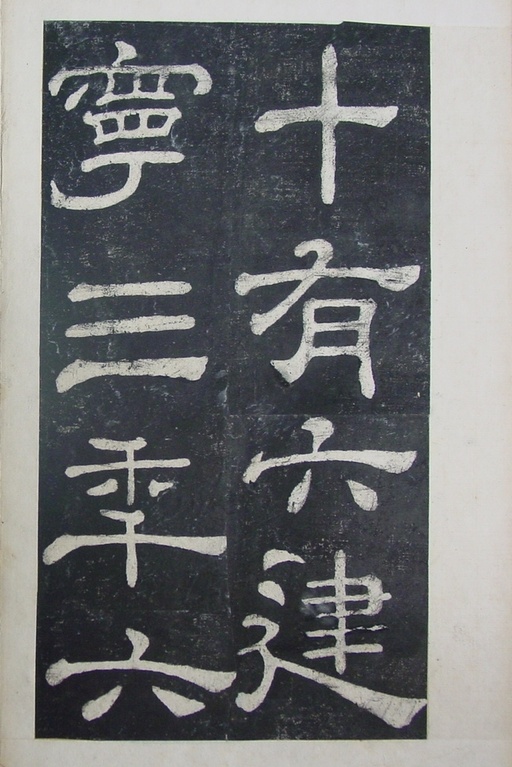 十有六建
寧三秊六